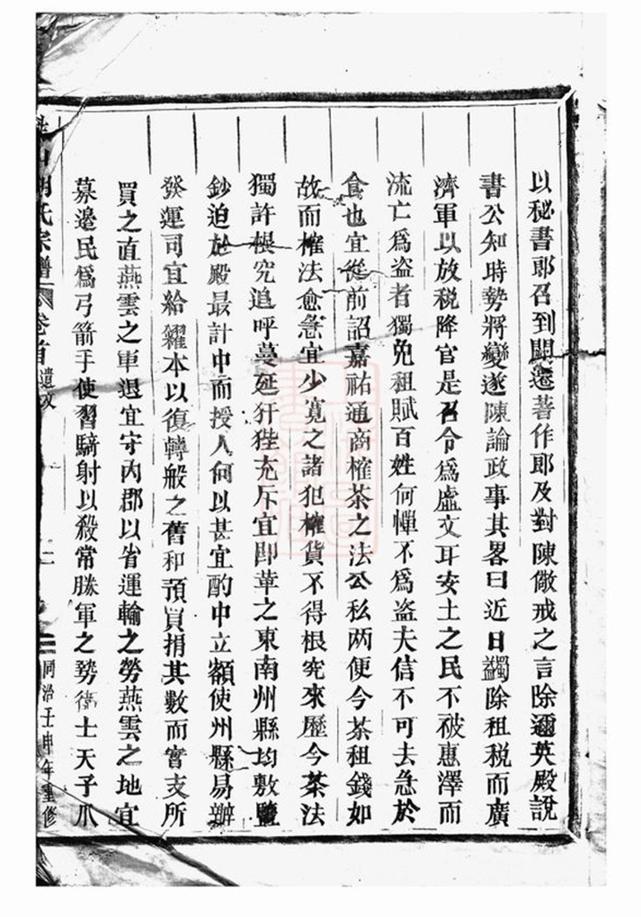 以秘書郎召到闕遷著作郎及對陳儆戒之言除邇英殿說
書公知時勢將變遂陳論政事其畧曰近日蠲除租税而廣
濟軍以放税降官是召令爲虚文耳安土之民不被惠澤而
流亡爲盗者獨免租賦百姓何憚不爲盗夫信不可去急於
食也宜從前詔嘉祐通商榷茶之法公私两便今茶租錢如
故而榷法愈急宜少寛之諸犯榷貨不得根究來歷今茶法
獨許根究追呼蔓延犴狴充斥宜即革之東南州縣均敷鹽
鈔迫於殿最計中而授人何以甚宜酌中立額使州縣易辦
發運司宜給糴本以復轉般之舊和預買捐其數而實支所
買之直燕雲之軍退宜守内郡以省運輸之勞燕雲之地宜
募邊民爲弓箭手使習騎射以殺常勝軍之勢衛士天子爪
山胡氏宗譜 卷首 遺文 二 同治壬申年重修